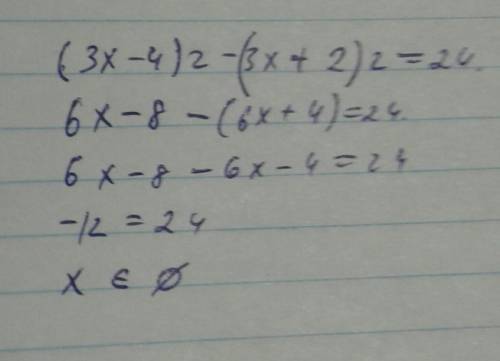 (3x-4)2-(3x+2)2=24.
6x-8-(6x+4)=24.
6x-8-6x-4=24
-12=24
x ∈ ∅